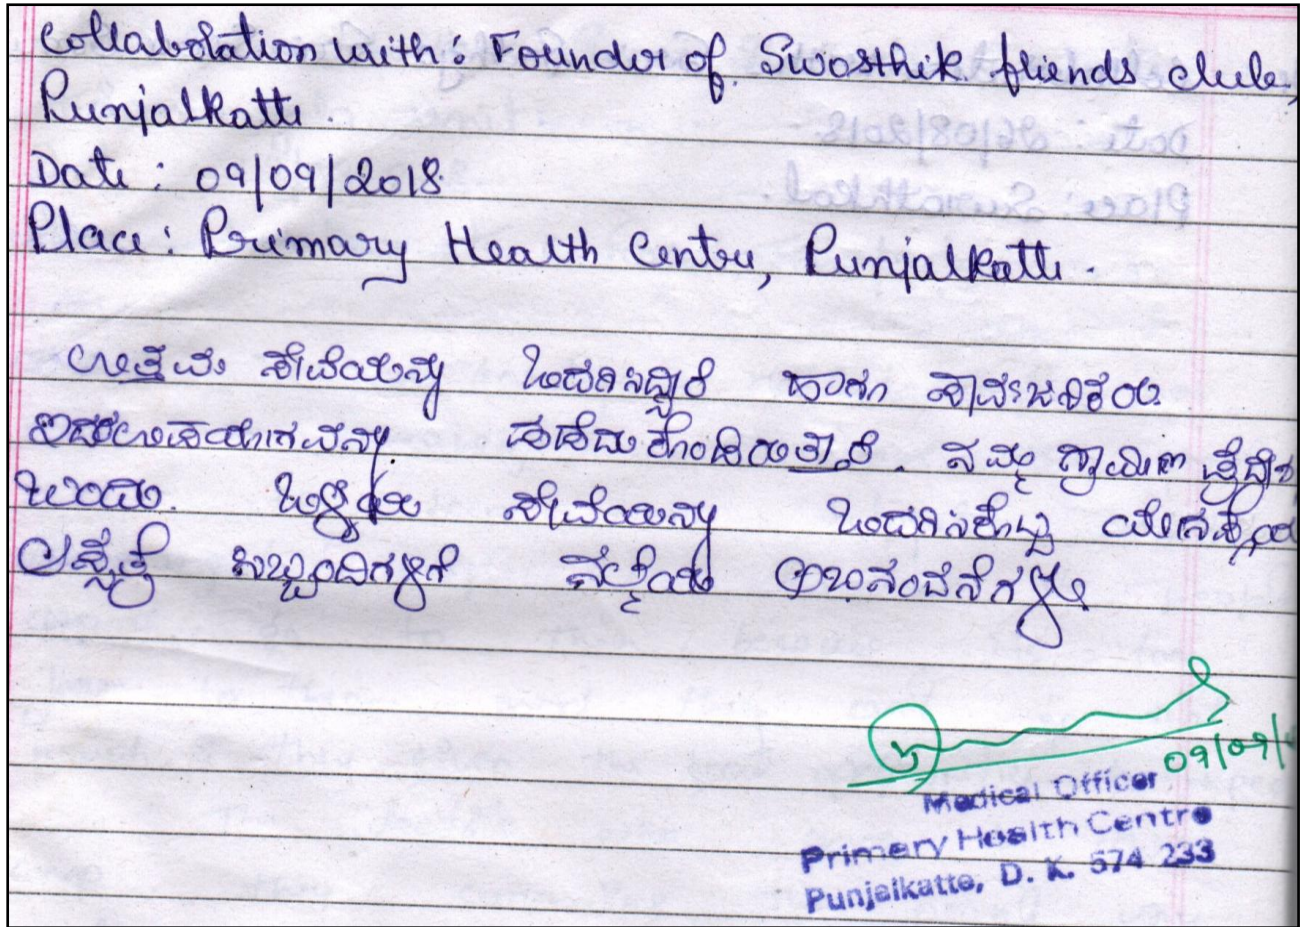 Collaboration with: Founder of Swasthik friends club,
Punjalkatte.
Date: 09/09/2018
Place: Primary Health Centre, Punjalkatte.
ಉತ್ತಮ ಸೇವೆಯನ್ನು ಒದಗಿಸಿದ್ದಾರೆ ಹಾಗೂ ಸಾರ್ವಜನಿಕರು
ಇದರ ಉಪಯೋಗವನ್ನು ಪಡೆದುಕೊಂಡಿರುತ್ತಾರೆ. ನಮ್ಮ ಗ್ರಾಮೀಣ ಪ್ರದೇಶ
ಬಂದು ಒಳ್ಳೆಯ ಸೇವೆಯನ್ನು ಒದಗಿಸಿಕೊಟ್ಟ
ಆಸ್ಪತ್ರೆ ಸಿಬ್ಬಂದಿಗಳಿಗೆ ಮೆಚ್ಚುಗೆಯ ಅಭಿನಂದನೆಗಳು
09/09/
Medical Officer
Primary Health Centre
Punjalkatte, D. K. 574 233